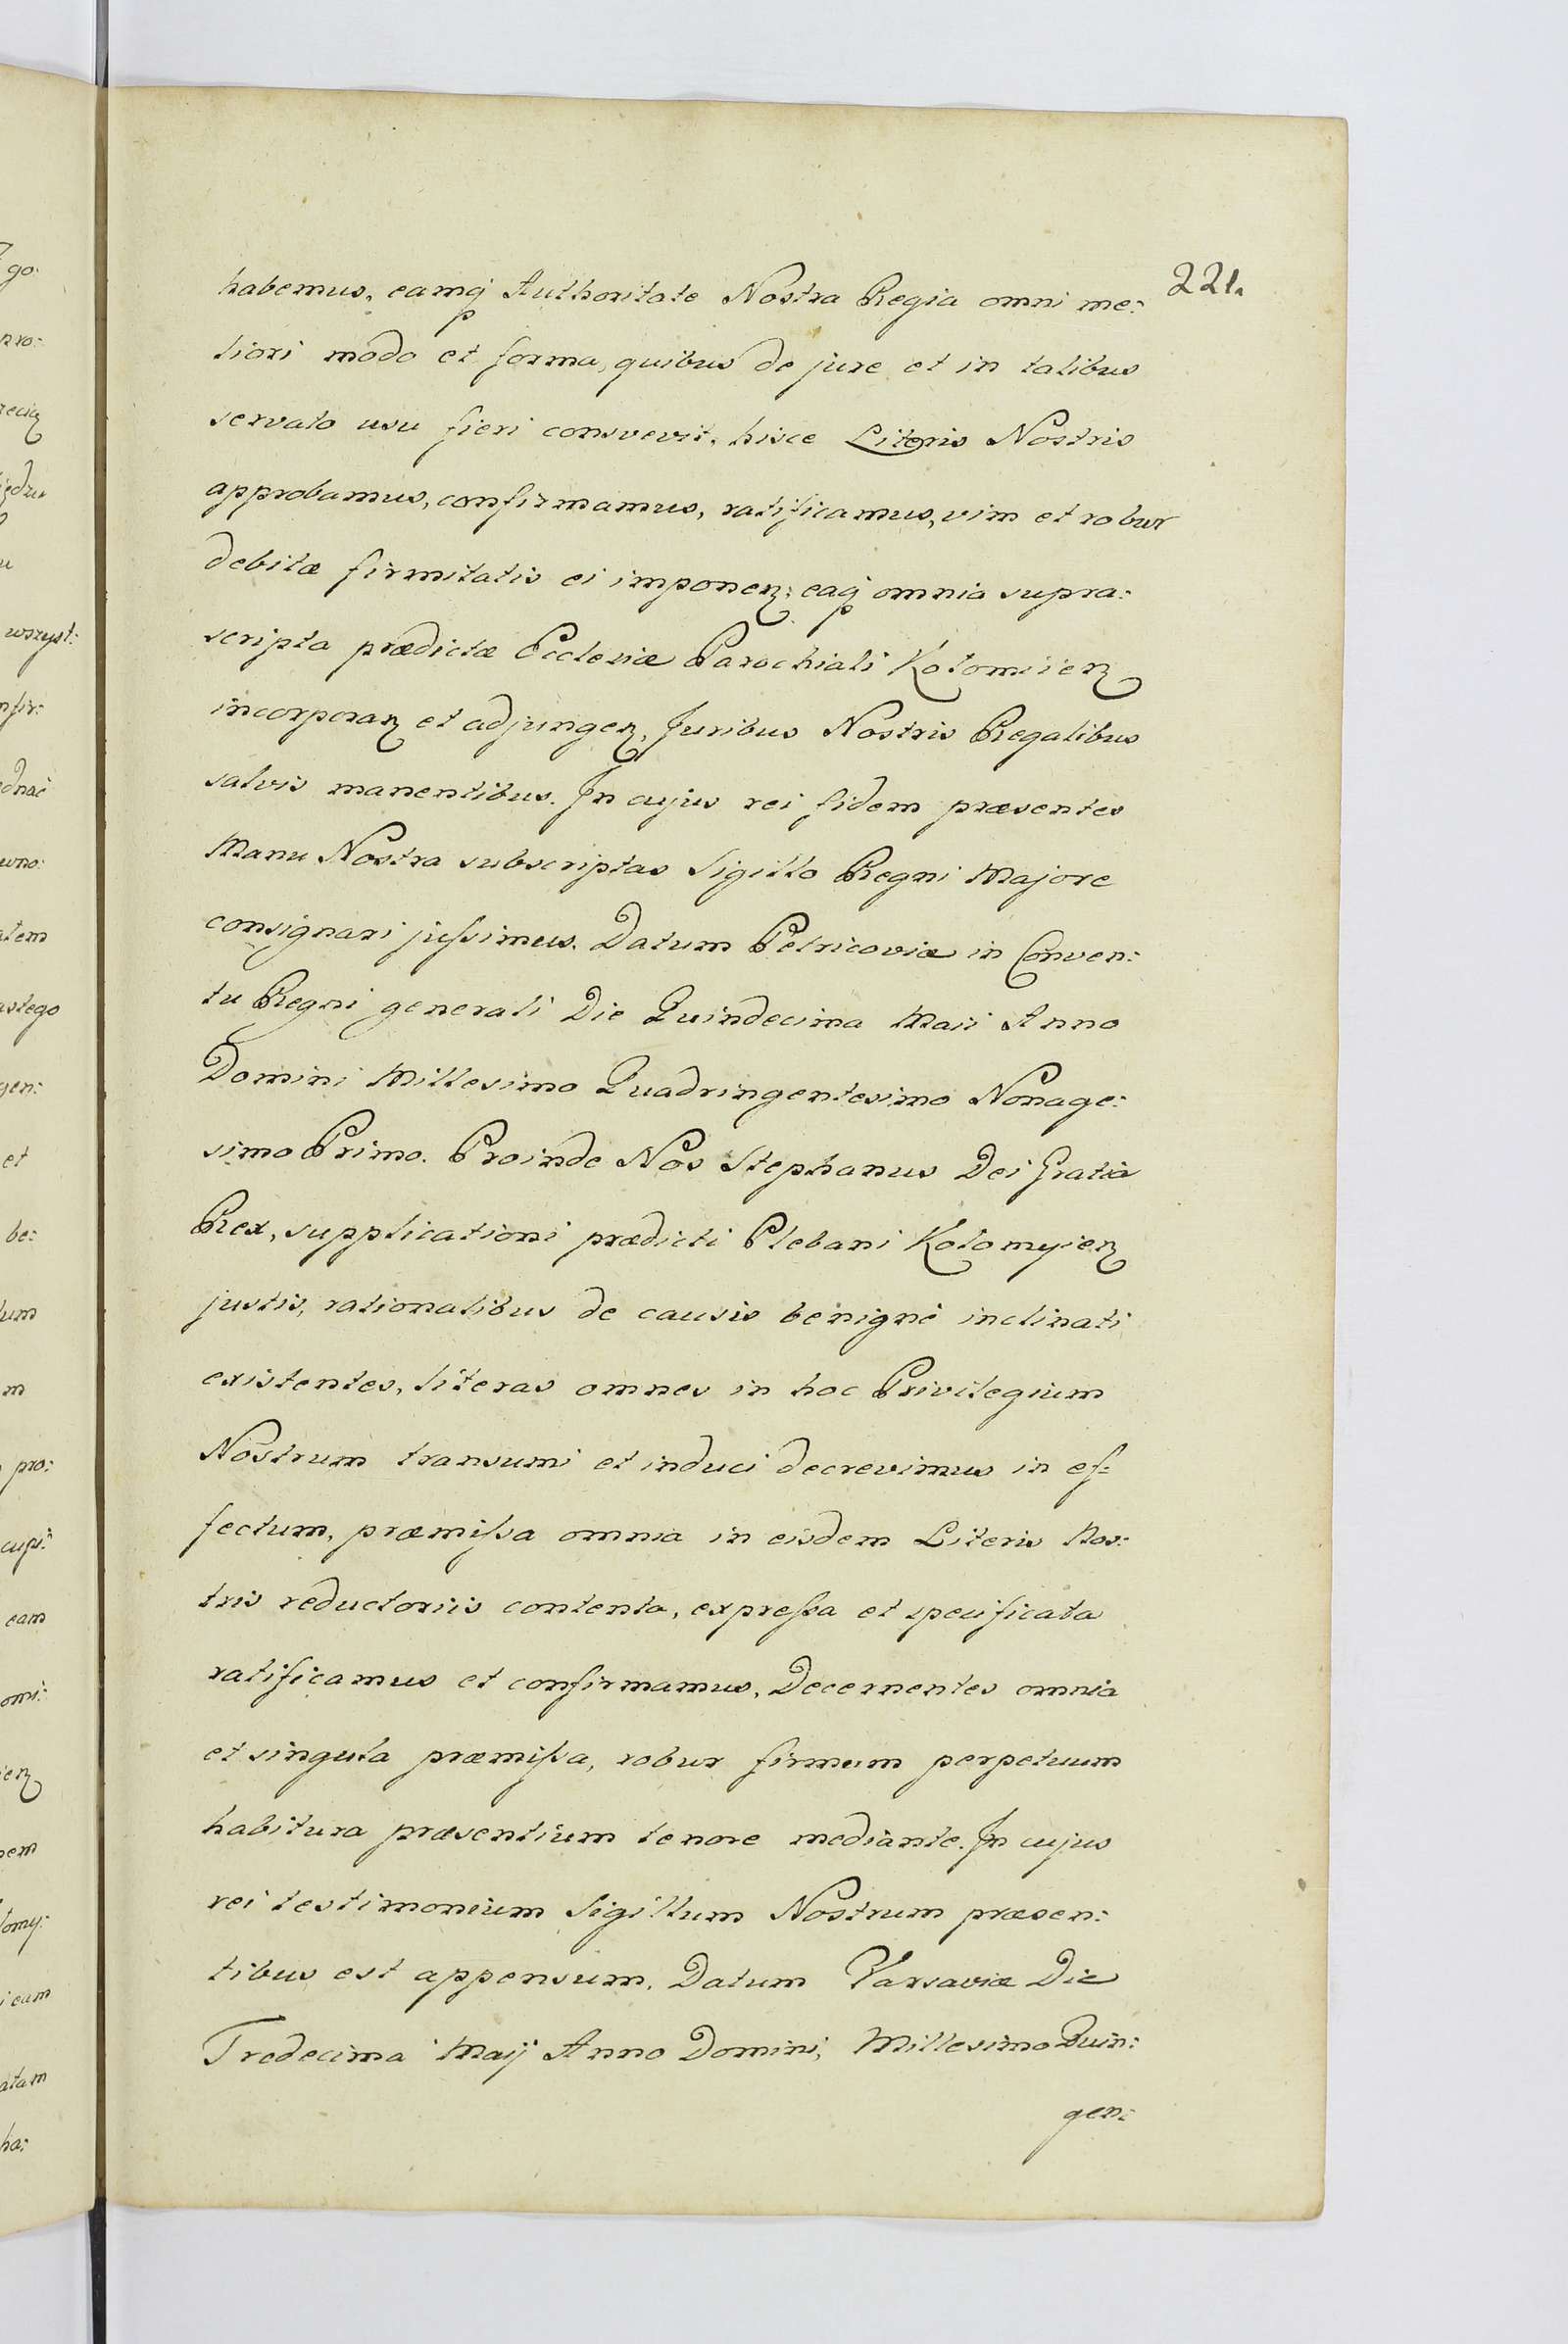 221.
habemus, eamq Authoritate Nostra Regia omni me:
liori modo et forma, quibus de jure et in talibus
servato usu fieri consvevit, hisce Literis Nostris
approbamus, confirmamus, ratificamus, vim et robur
debitæ firmitatis ei imponen: eaq omnia supra:
scripta prædictæ Ecclesiæ Parochiali Kolomiien
incorporan et adjungen, Juribus Nostris Regalibus
salvis manentibus. In cujus rei fidem præsentes
Manu Nostra subscriptas Sigillo Regni Majore
consignari jussimus. Datum Petricoviæ in Conven:
tu Regni generali Die Quindecima Maii Anno
Domini Millesimo Quadringentesimo Nonage:
simo Primo. Proinde Nos Stephanus Dei Gratia
Rex, supplicationi prædicti Plebani Kolomyien
justis, rationalibus de causis benignè inclinati
existentes, literas omnes in hoc Privilegium
Nostrum transumi et induci decrevimus in ef:
fectum, præmissa omnia in eisdem Literis Nos:
tris reductoriis contenta, expressa et specificata
ratificamus et confirmamus, Decernentes omnia
et singula præmissa, robur firmum perpetuum
habitura præsentium tenore mediante. In cujus
rei testimonium Sigillum Nostrum præsen:
tibus est appensum. Datum Varsaviæ Die
Tredecima Maij Anno Domini, Millesimo Quin:
gen:
go:
wszyst:
ednać
astego
gen:
et
be:
pro:
eam
ha: